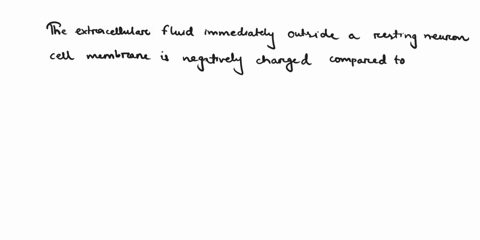 The extracellular fluid immediately outside a resting neuron
cell membrane is negatively charged compared to